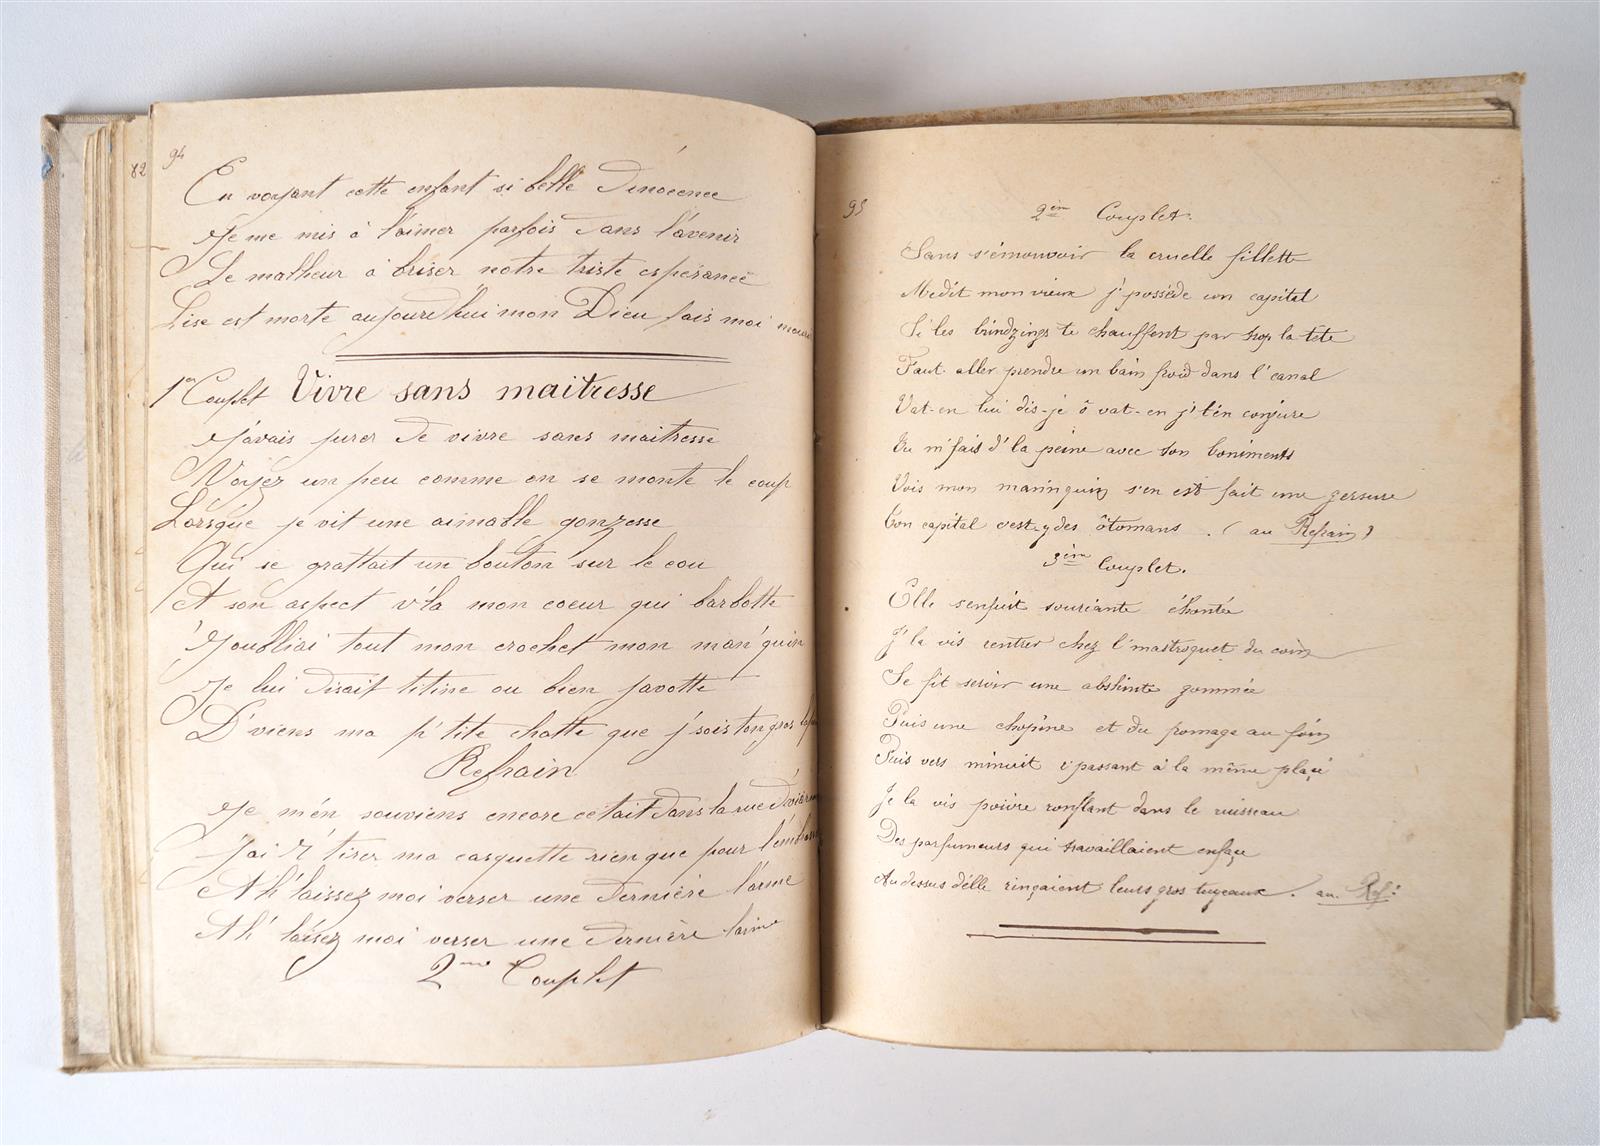 82
94
En voyant cette enfant si belle d'inocence
Je me mis à l'aimer parfois dans l'avenir
Le malheur à briser notre triste espérance
Lise est morte aujourd'hui mon Dieu fais moi
1er Couplet Vivre sans maitresse
J'avais jurer de vivre sans maitresse
Voyez un peu comme on se monte le coup
Lorsque je vit une aimable gonzesse
Qui se grattait un bouton sur le cou
A son aspect v'la mon coeur qui barbotte
J'oubliai tout mon crochet mon man'quin
Je lui disait titine ou bien javotte
D'viens ma p'tite chatte que j'sois ton gros
Refrain
Je m'én souviens encore cétait dans la rue
J'ai r'tirer ma casquette rien que pour
Ah! laissez moi verser une dernière larme
Ah! laisez moi verser une dernière larme
2me Couplet
95
2ém Couplet.
Sans s'émouvoir la cruelle fillette
Medit mon vieux j'possède un capital
Si les brindzings te chauffent par trop la tete
Faut aller prendre un bain froid dans l'canal
Vat-en lui dis-je ô vat-en j't'én conjure
Tu m'fais d'la peine avec ton boniments
Vois mon mann'quin s'en est fait une gersure
Ton capital c'est-y des ôtomans. (au Refrain)
3ème Couplet.
Elle s'enfuit souriante éhontée
J'la vis rentrer chez l'mastroquet du coin
Se fit servir une abshinte gommée
Puis une chopine et du fromage au foin
Puis vers minuit r'passant à la même place
Je la vis poivre ronflant dans le ruisseau
Des parfumeurs qui travaillaient enface
Au dessus d'élle rinçaient leurs gros tuyeaux. au. Ref: